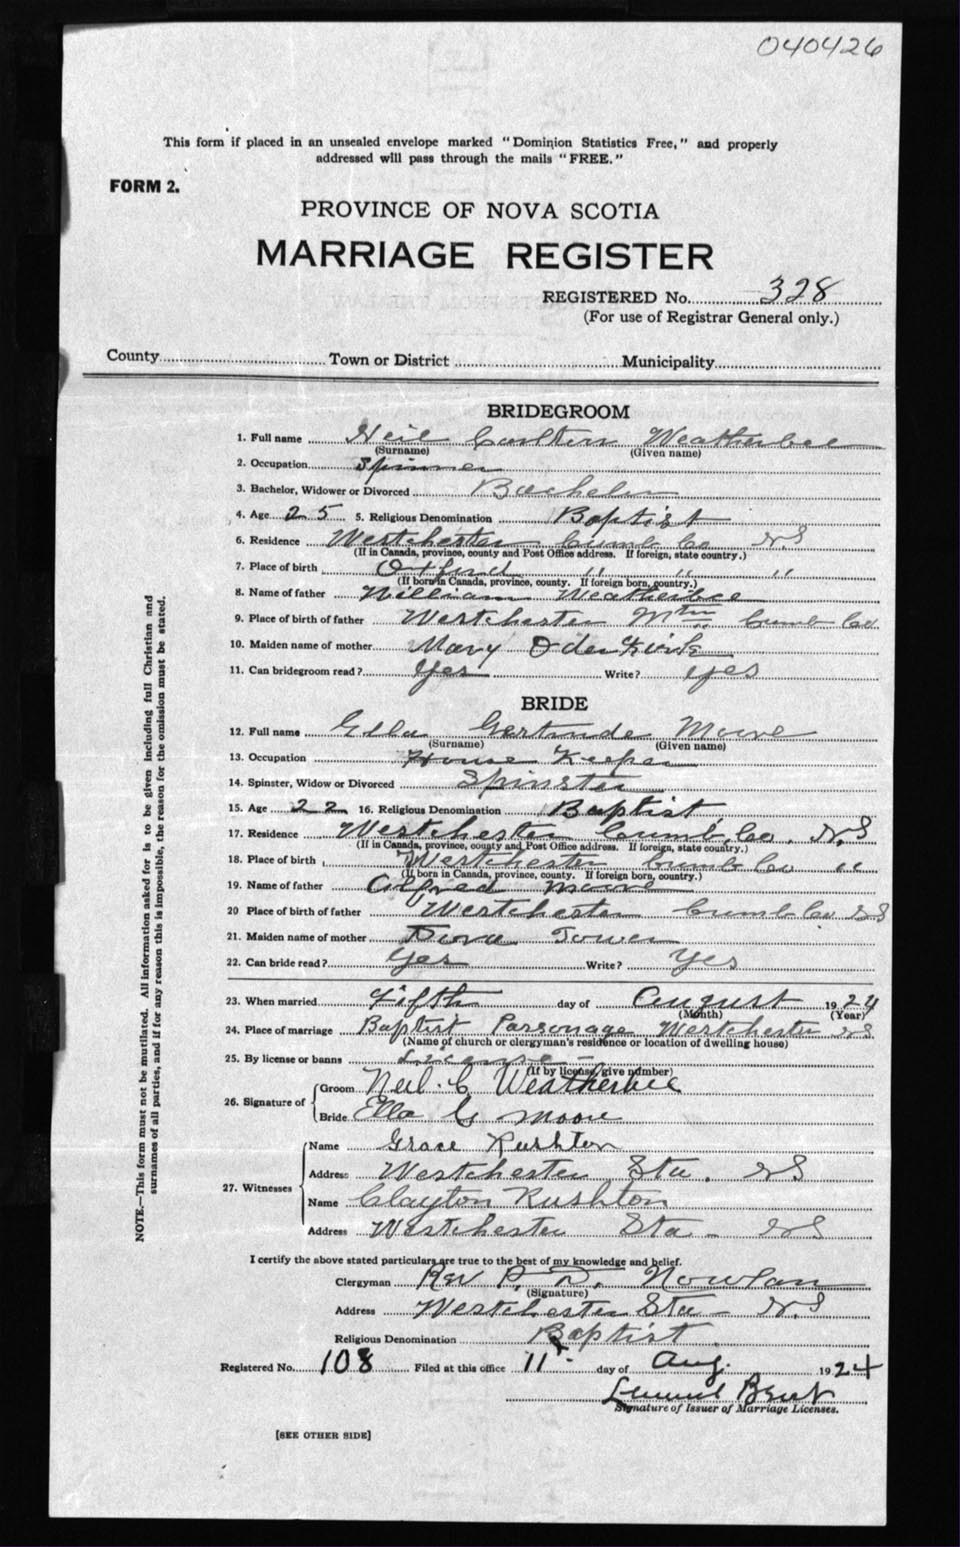 040426
This form if placed in an unsealed envelope marked "Dominion Statistics Free," and properly
addressed will pass through the mails "FREE."
FORM 2.
PROVINCE OF NOVA SCOTIA
MARRIAGE REGISTER
REGISTERED No. 328
(For use of Registrar General only.)
County Town or District Municipality
BRIDEGROOM
1. Full name Neil Carlton Weatherbee
(Surname) (Given name)
2. Occupation Spinner
3. Bachelor, Widower or Divorced Bachelor
4. Age 25 5. Religious Denomination Baptist
6. Residence Westchester Cumb. Co NS
(If in Canada, province, county and Post Office address. If foreign, state country.)
7. Place of birth Oxford " " "
(If born in Canada, province, county. If foreign born, country.)
8. Name of father William Weatherbee
9. Place of birth of father Westchester Mtn Cumb Co.
10. Maiden name of mother Mary Odenkirk
11. Can bridegroom read? Yes Write? yes
BRIDE
12. Full name Ella Gertrude Moore
(Surname) (Given name)
13. Occupation House Keeper
14. Spinster, Widow or Divorced Spinster
15. Age 22 16. Religious Denomination Baptist
17. Residence Westchester Cumb. Co. NS
(If in Canada, province, county and Post Office address. If foreign, state country.)
18. Place of birth Westchester Cumb Co "
(If born in Canada, province, county. If foreign born, country.)
19. Name of father Alfred Moore
20 Place of birth of father Westchester Cumb Co NS
21. Maiden name of mother Dora Tower
22. Can bride read? Yes Write? Yes
23. When married Fifth day of August 1924
(Month) (Year)
24. Place of marriage Baptist Parsonage Westchester NS
(Name of church or clergyman's residence or location of dwelling house)
25. By license or banns License -
(If by license, give number)
26. Signature of Groom Neil. C Weatherbee
Bride Ella G Moore
27. Witnesses Name Grace Rushton
Address Westchester Sta. NS
Name Clayton Rushton
Address Westchester Sta - NS
I certify the above stated particulars are true to the best of my knowledge and belief.
Clergyman Rev P. D. Nowlan
(Signature)
Address Westchester Sta - NS
Religious Denomination Baptist
Registered No. 108 Filed at this office 11 day of Aug. 1924
Lemuel Bent
Signature of Issuer of Marriage Licenses.
[SEE OTHER SIDE]
NOTE.—This form must not be mutilated. All information asked for is to be given including full Christian and
surnames of all parties, and if for any reason this is impossible, the reason for the omission must be stated.